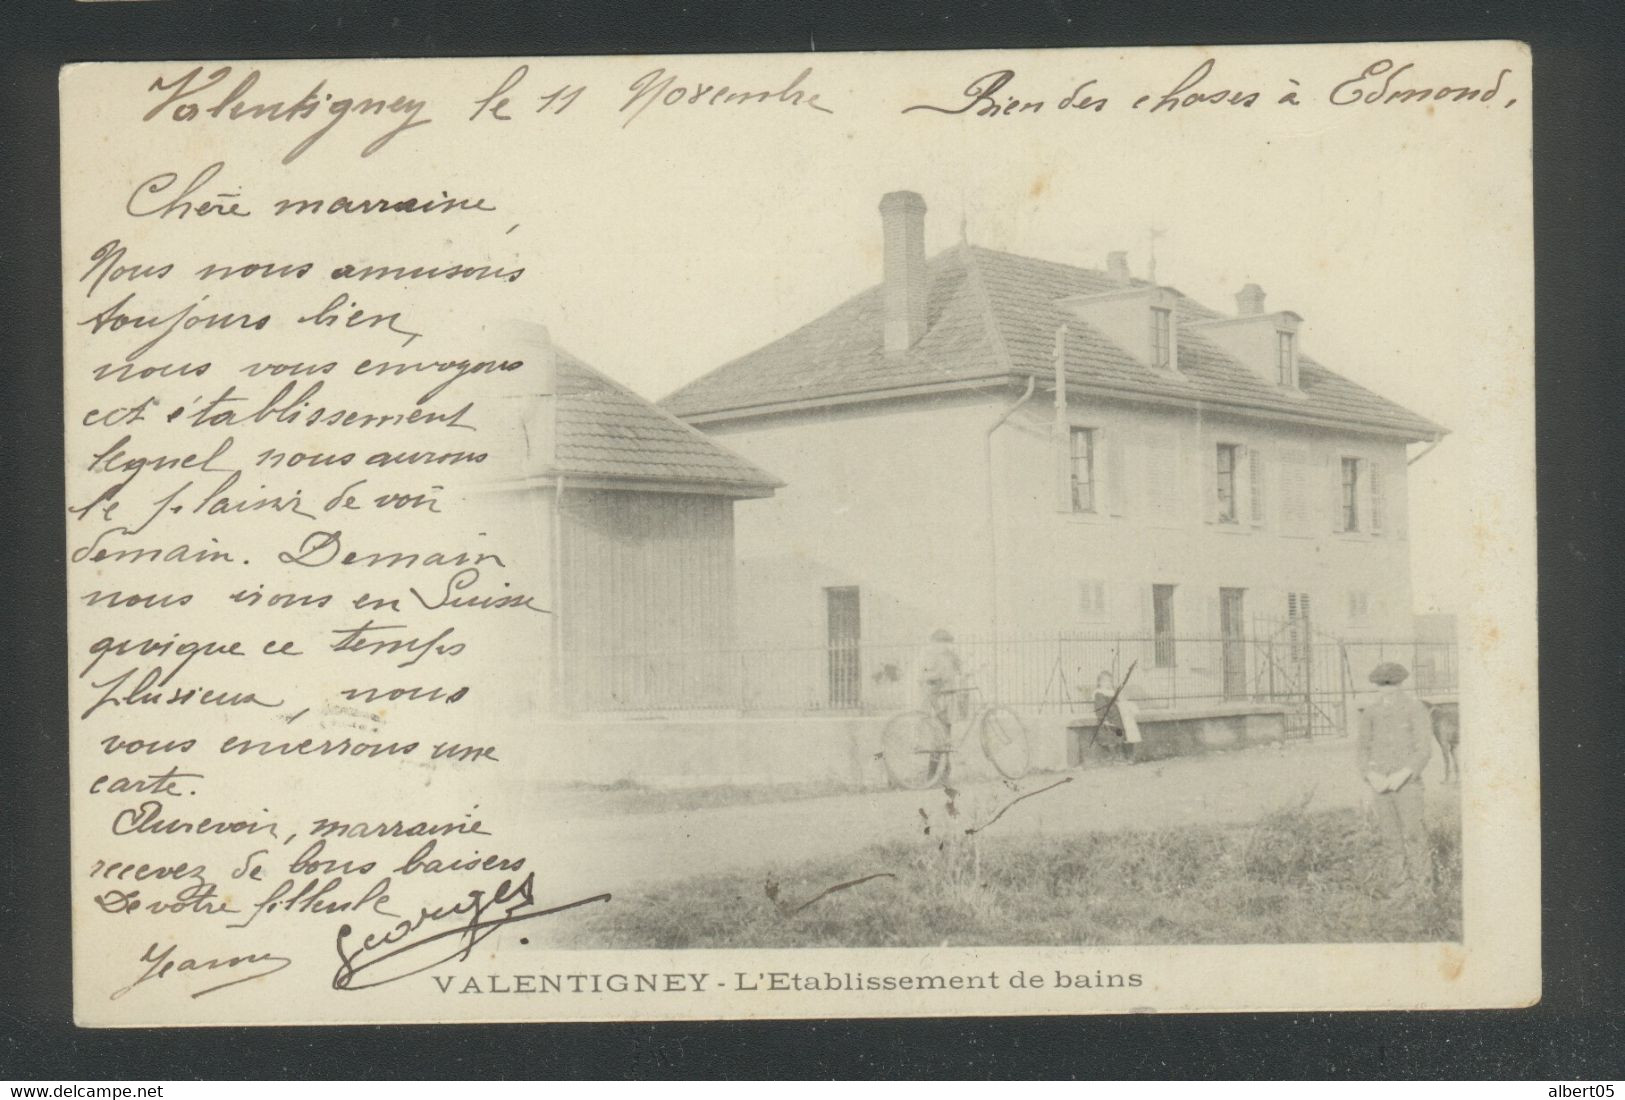 Valentigney le 11 Novembre
Bien des choses à Edmond.
Chère marraine,
Nous nous amusons
toujours bien,
nous vous envoyons
cet établissement
lequel nous aurons
le plaisir de voir
demain. Demain
nous irons en Suisse
quoique ce temps
pluvieux, nous
vous enverrons une
carte.
Aurevoir, marraine
recevez de bons baisers
De votre filleule
Jeanne Georges
VALENTIGNEY - L'Etablissement de bains
www.delcampe.net
albert05